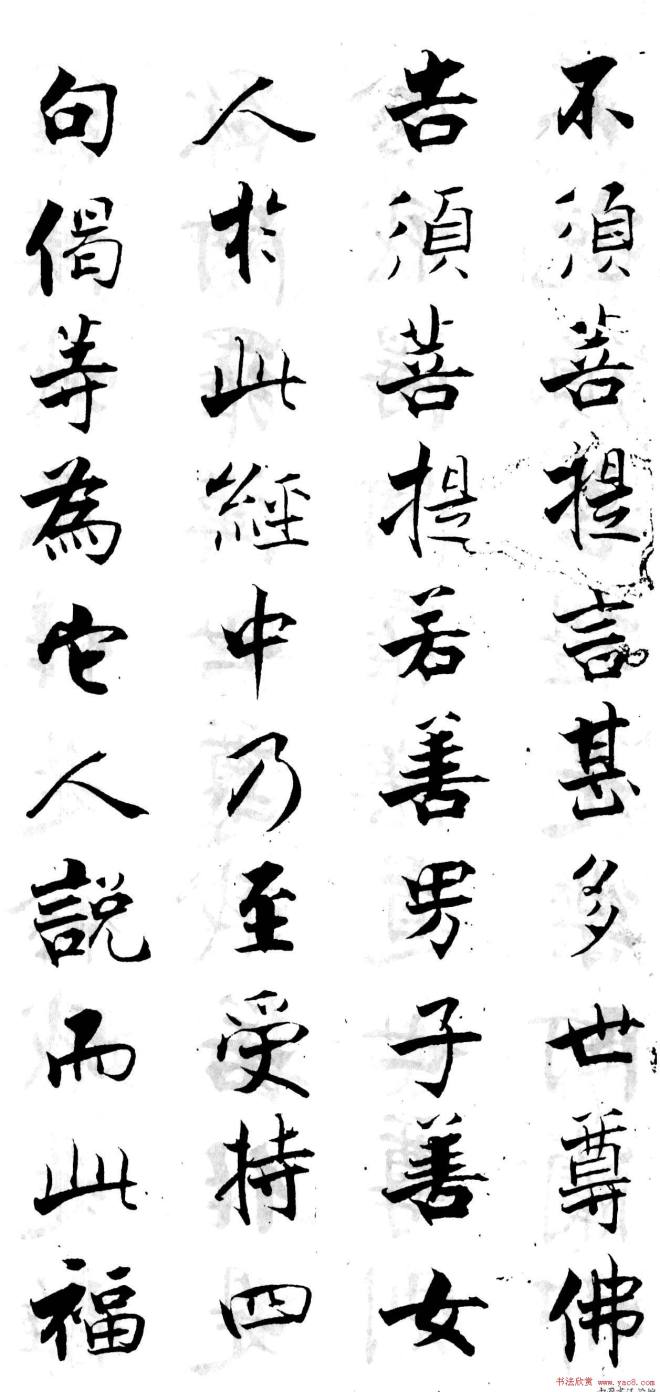 不須菩提言甚多世尊佛
告須菩提若善男子善女
人於此經中乃至受持四
句偈等為它人說而此福
书法欣赏
www.yac8.com